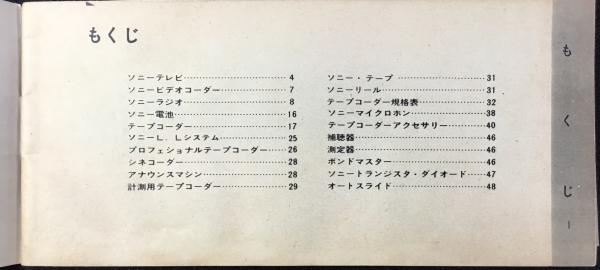 もくじ
ソニーテレビ……………………………4
ソニービデオコーダー…………………7
ソニーラジオ……………………………8
ソニー電池………………………………16
テープコーダー…………………………17
ソニーL．Lシステム……………………25
プロフェショナルテープコーダー……26
シネコーダー……………………………28
アナウンスマシン………………………28
計測用テープコーダー…………………29
ソニー・テープ…………………………31
ソニーリール……………………………31
テープコーダー規格表…………………32
ソニーマイクロホン……………………38
テープコーダーアクセサリー…………40
補聴器……………………………………46
測定器……………………………………46
ボンドマスター…………………………46
ソニートランジスタ・ダイオード……47
オートスライド…………………………48
もくじ